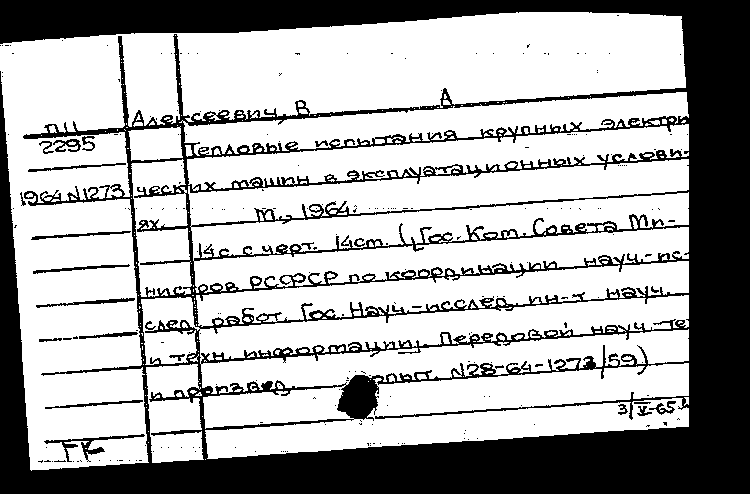 А
ПII Алексеевич, В
2295 Тепловые испытания крупных электри
1964 N1273 ческих машин в эксплуатационных услови-
ях. М., 1964.
14 с. с черт. 14 см. (Гос. Ком. Совета Ми-
нистров РСФСР по координации науч.-ис-
след. работ. Гос. Науч.-исслед. ин-т науч.
и техн. информации). Передовой науч.-те
и произвед. опыт. N28-64-1273/59)
3/V-65
ГК